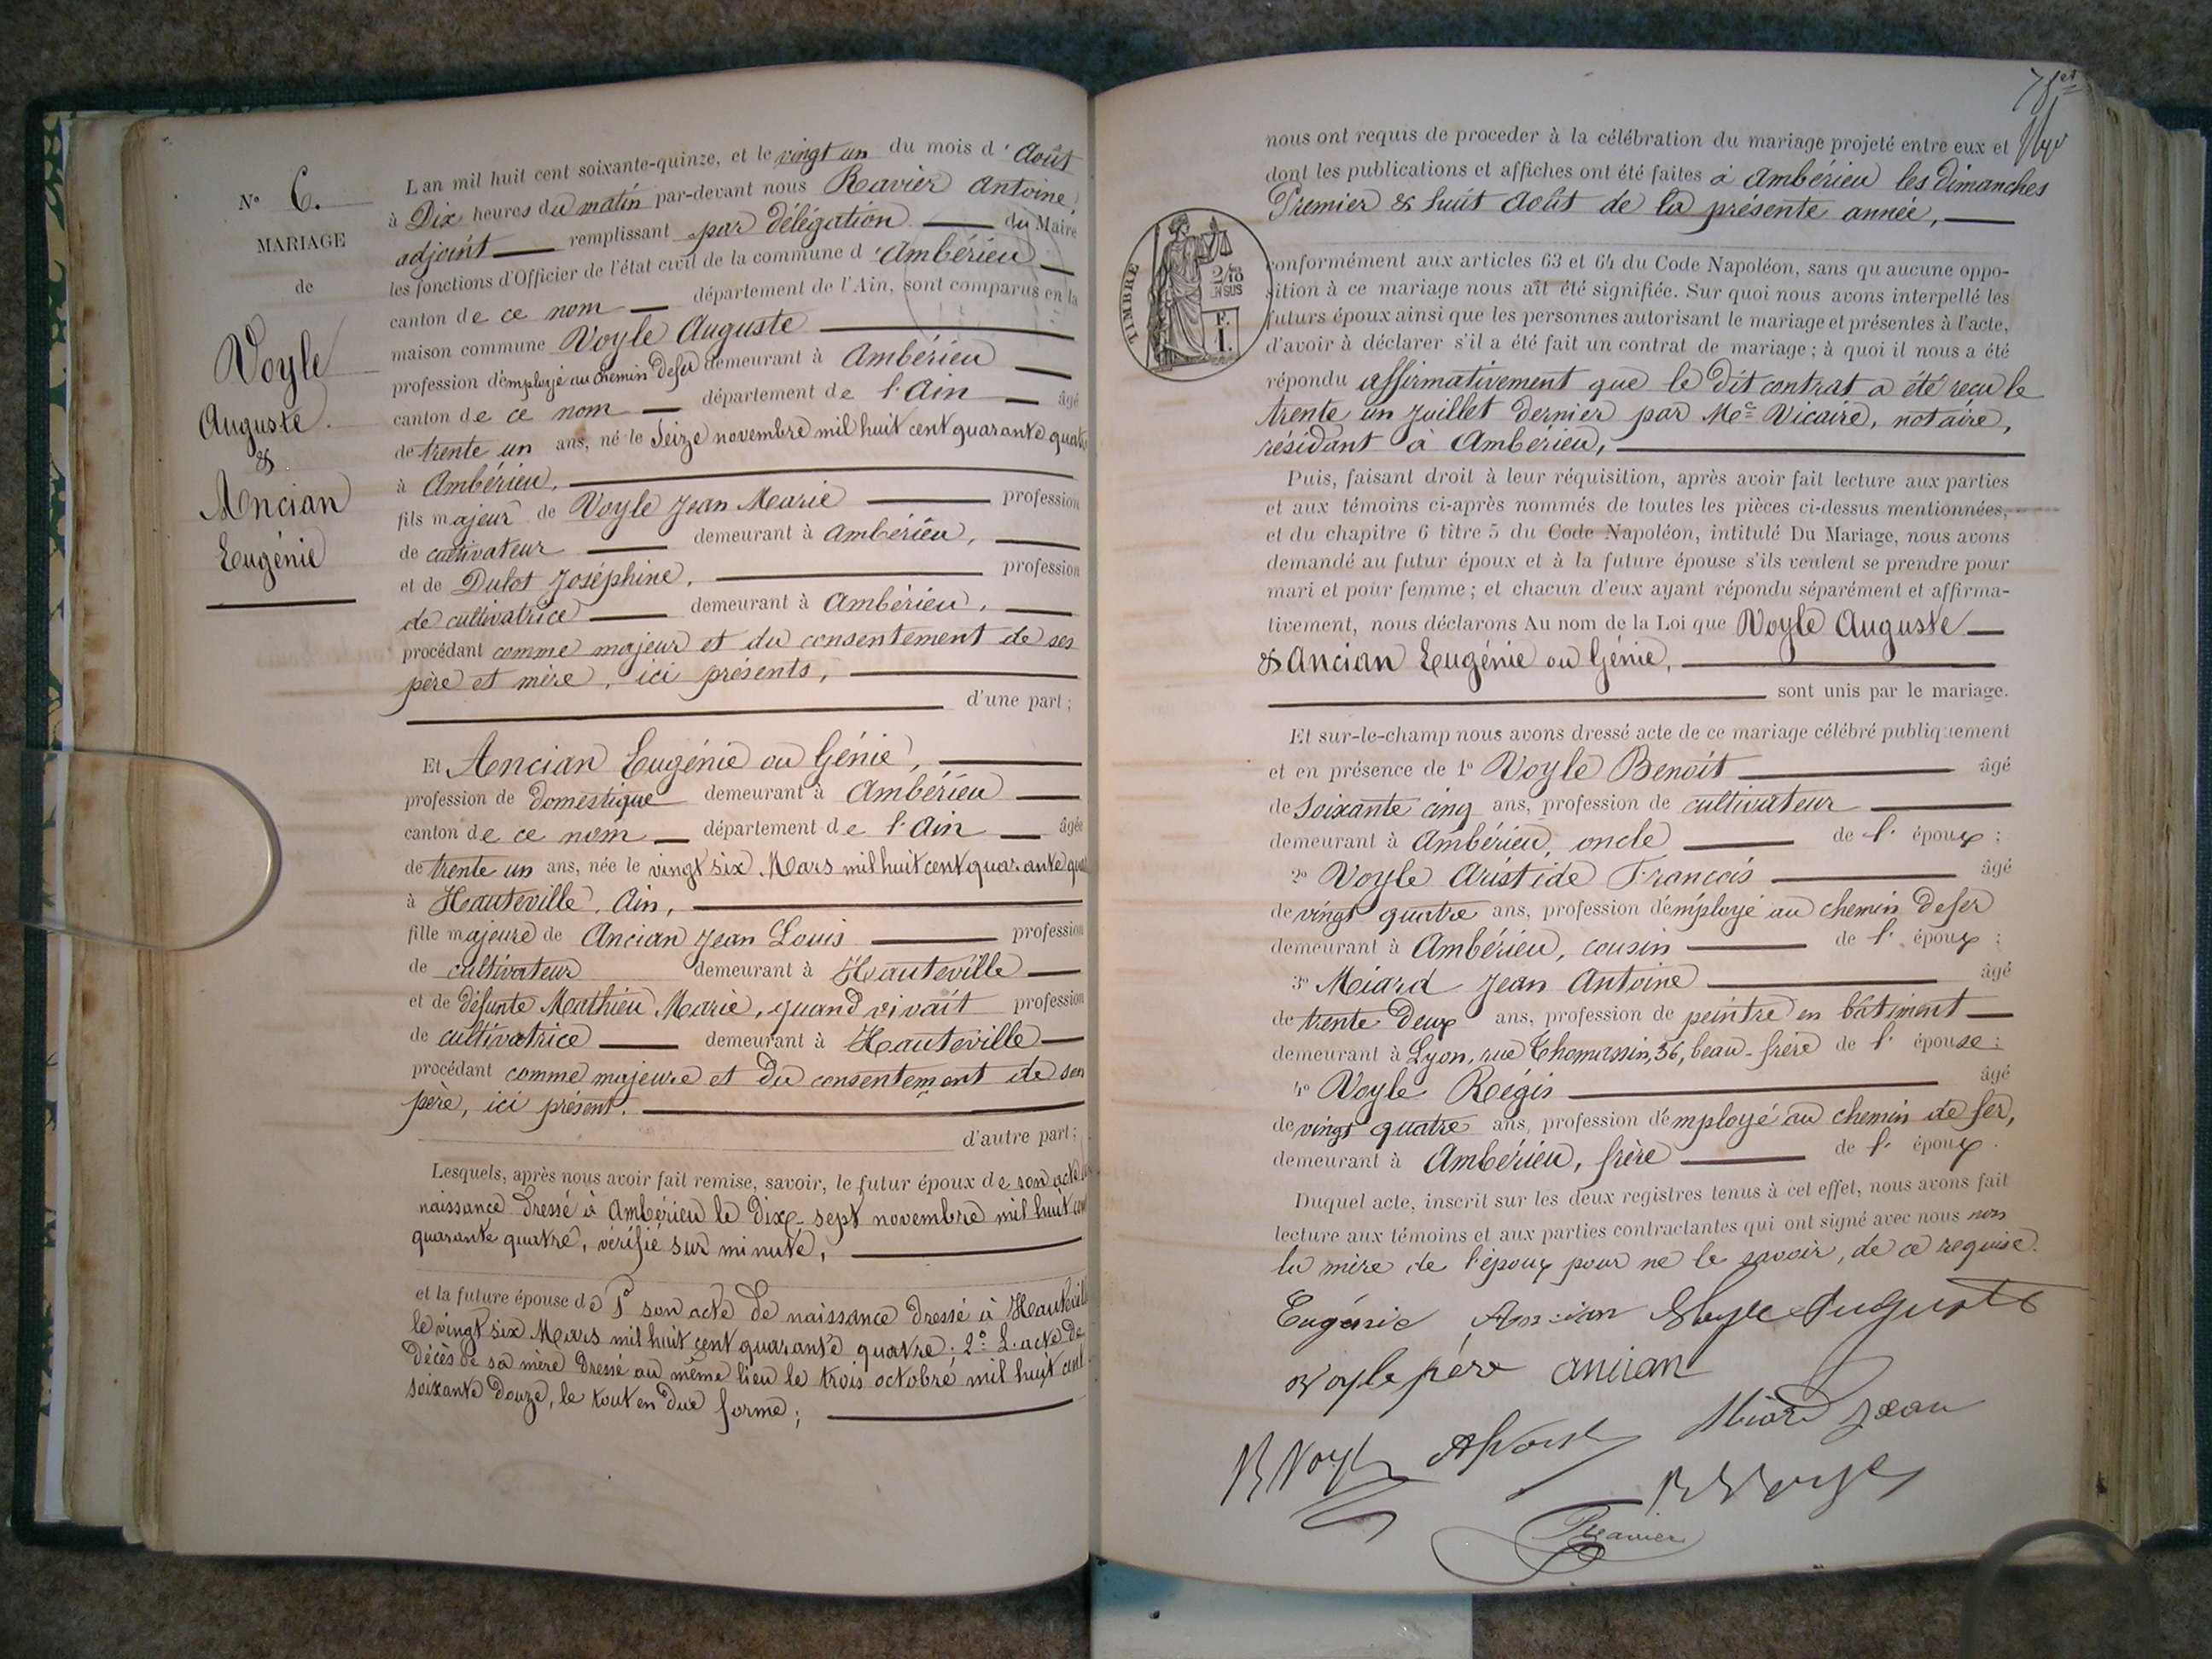 N° 6.
MARIAGE
de
Voyle
Auguste.
&
Ancian
Eugénie
L an mil huit cent soixante-quinze, et le vingt un du mois d'Août
à Dix heures du matin par-devant nous Ravier Antoine,
adjoint remplissant par Délégation du Maire
les fonctions d'Officier de l'état civil de la commune d'Ambérieu
canton de ce nom département de l'Ain, sont comparus en la
maison commune Voyle Auguste
profession d'employé au chemin de fer demeurant à Ambérieu
canton de ce nom département de l'Ain âgé
de trente un ans, né le Seize novembre mil huit cent quarante quatre
à Ambérieu,
fils majeur de Voyle Jean Marie profession
de cultivateur demeurant à Ambérieu,
et de Dulot Joséphine, profession
de cultivatrice demeurant à Ambérieu,
procédant comme majeur et du consentement de ses
père et mère, ici présents,
d'une part;
Et Ancian Eugénie ou Génie,
profession de domestique demeurant à Ambérieu
canton de ce nom département de l'Ain âgée
de trente un ans, née le vingt six Mars mil huit cent quarante qua
à Hauteville, Ain,
fille majeure de Ancian Jean Louis profession
de cultivateur demeurant à Hauteville
et de défunte Mathieu Marie, quand vivait profession
de cultivatrice demeurant à Hauteville
procédant comme majeure et du consentement de son
père, ici présent.
d'autre part;
Lesquels, après nous avoir fait remise, savoir, le futur époux de son acte de
naissance Dressé à Ambérieu le Dix-sept novembre mil huit cent
quarante quatre, vérifié sur minute,
et la future épouse de 1° son acte de naissance Dressé à Hauteville
le vingt six Mars mil huit cent quarante quatre. 2° L'acte de
Décès de sa mère Dressé au même lieu le trois octobre mil huit cent
soixante Douze, le tout en Due forme;
nous ont requis de proceder à la célébration du mariage projeté entre eux et
dont les publications et affiches ont été faites à Ambérieu les Dimanches
Premier & huit Août de la présente année,
TIMBRE
2/10
EN SUS
F.
1.
conformément aux articles 63 et 64 du Code Napoléon, sans qu aucune oppo-
sition à ce mariage nous ait été signifiée. Sur quoi nous avons interpellé les
futurs époux ainsi que les personnes autorisant le mariage et présentes à l'acte,
d'avoir à déclarer s'il a été fait un contrat de mariage; à quoi il nous a été
répondu affirmativement que le dit contrat a été reçu le
trente un Juillet dernier par Me Vicaire, notaire,
résidant à Ambérieu,
Puis, faisant droit à leur réquisition, après avoir fait lecture aux parties
et aux témoins ci-après nommés de toutes les pièces ci-dessus mentionnées,
et du chapitre 6 titre 5 du Code Napoléon, intitulé Du Mariage, nous avons
demandé au futur époux et à la future épouse s'ils veulent se prendre pour
mari et pour femme; et chacun d'eux ayant répondu séparément et affirma-
tivement, nous déclarons Au nom de la Loi que Voyle Auguste
& Ancian Eugénie ou Génie,
sont unis par le mariage.
Et sur-le-champ nous avons dressé acte de ce mariage célébré publiquement
et en présence de 1° Voyle Benoit âgé
de soixante cinq ans, profession de cultivateur
demeurant à Ambérieu, oncle de l'époux;
2° Voyle Aristide François âgé
de vingt quatre ans, profession d'employé au chemin de fer
demeurant à Ambérieu, cousin de l'époux;
3° Miard Jean Antoine âgé
de trente Deux ans, profession de peintre en bâtiment
demeurant à Lyon, rue Thomassin, 36, beau-frère de l'épouse;
4° Voyle Régis âgé
de vingt quatre ans, profession d'employé au chemin de fer,
demeurant à Ambérieu, frère de l'époux.
Duquel acte, inscrit sur les deux registres tenus à cet effet, nous avons fait
lecture aux témoins et aux parties contractantes qui ont signé avec nous non
la mère de l'époux pour ne le savoir, de ce requise.
Eugénie Ancian Voyle Auguste
voyle père ancian
B Voyle A Voyle Miard Jean
R Voyle
Ravier